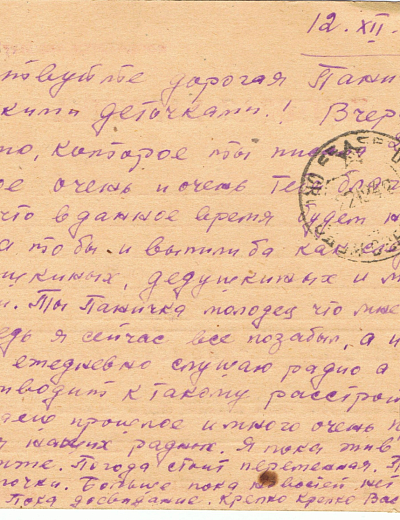 12. XII.
твуйте дорогая Пани
кими деточками! Вчер
о, которое ты писа
ое очень и очень тебе благо
что в данное время будем н
а то бы и выпили ба
ушкиных, дедушкиных и м
и. Ты Паничка молодец что мне
едь я сейчас все позабыл, а и
ежедневно слушаю радио а
иводит к такому расстрой
прошлое и много очень п
наших родных. Я пока жив
же. Погода стоит переменная. П
очки. Больше пока новостей нет
Пока досвидание. Крепко крепко Вас